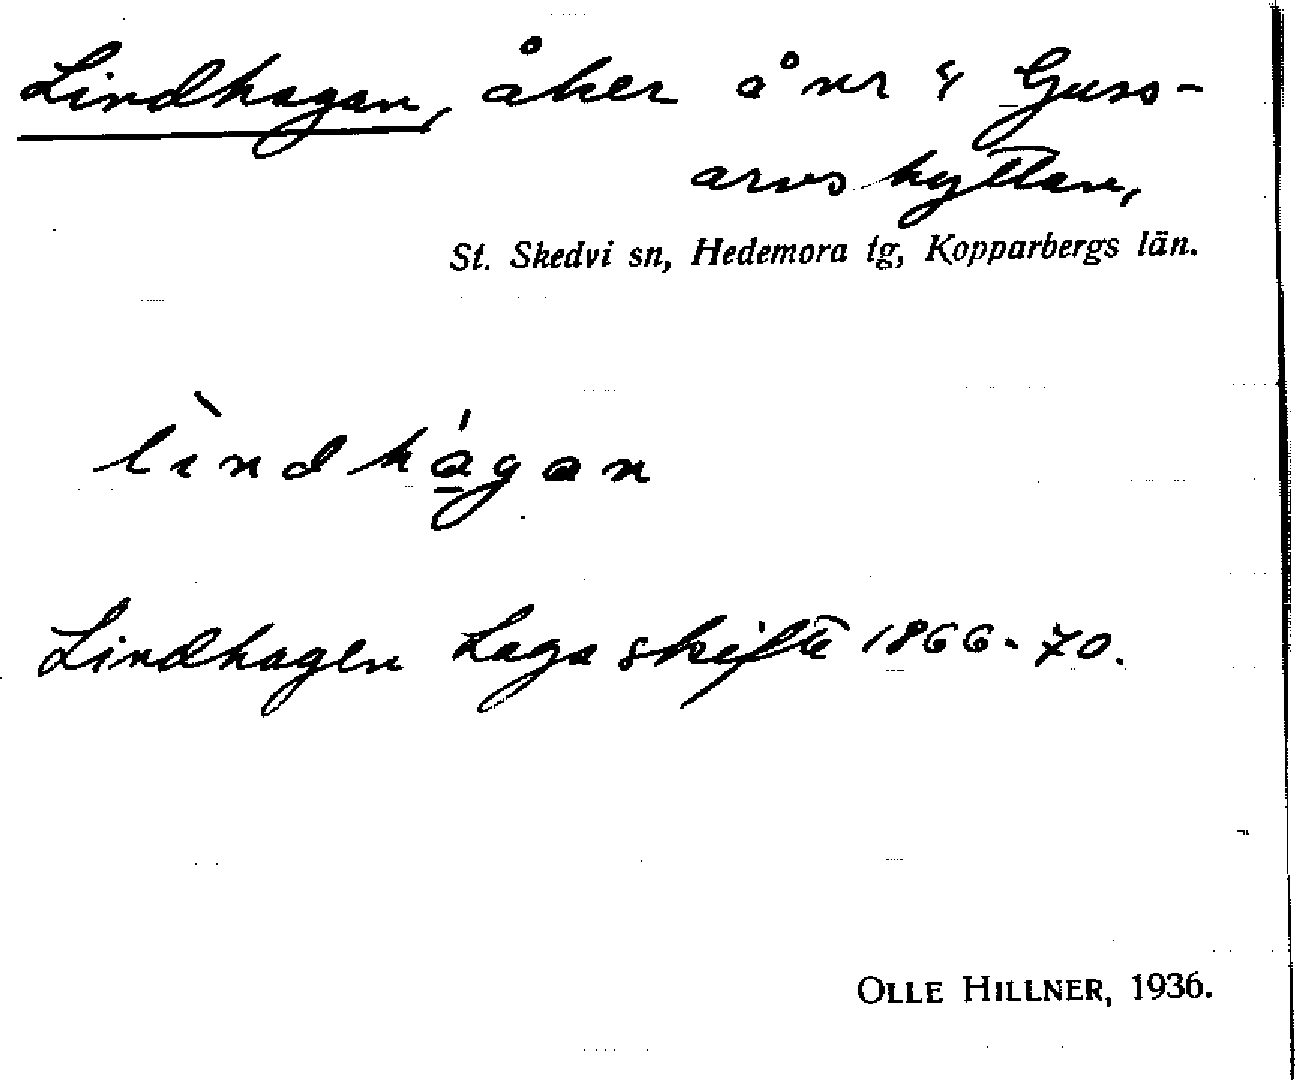 Lindhagan, åker å nr 4 Guss-
arvshyttan,
St. Skedvi sn, Hedemora tg, Kopparbergs län.
lìndhágan
Lindhagen Laga skifte 1866-70.
OLLE HILLNER, 1936.